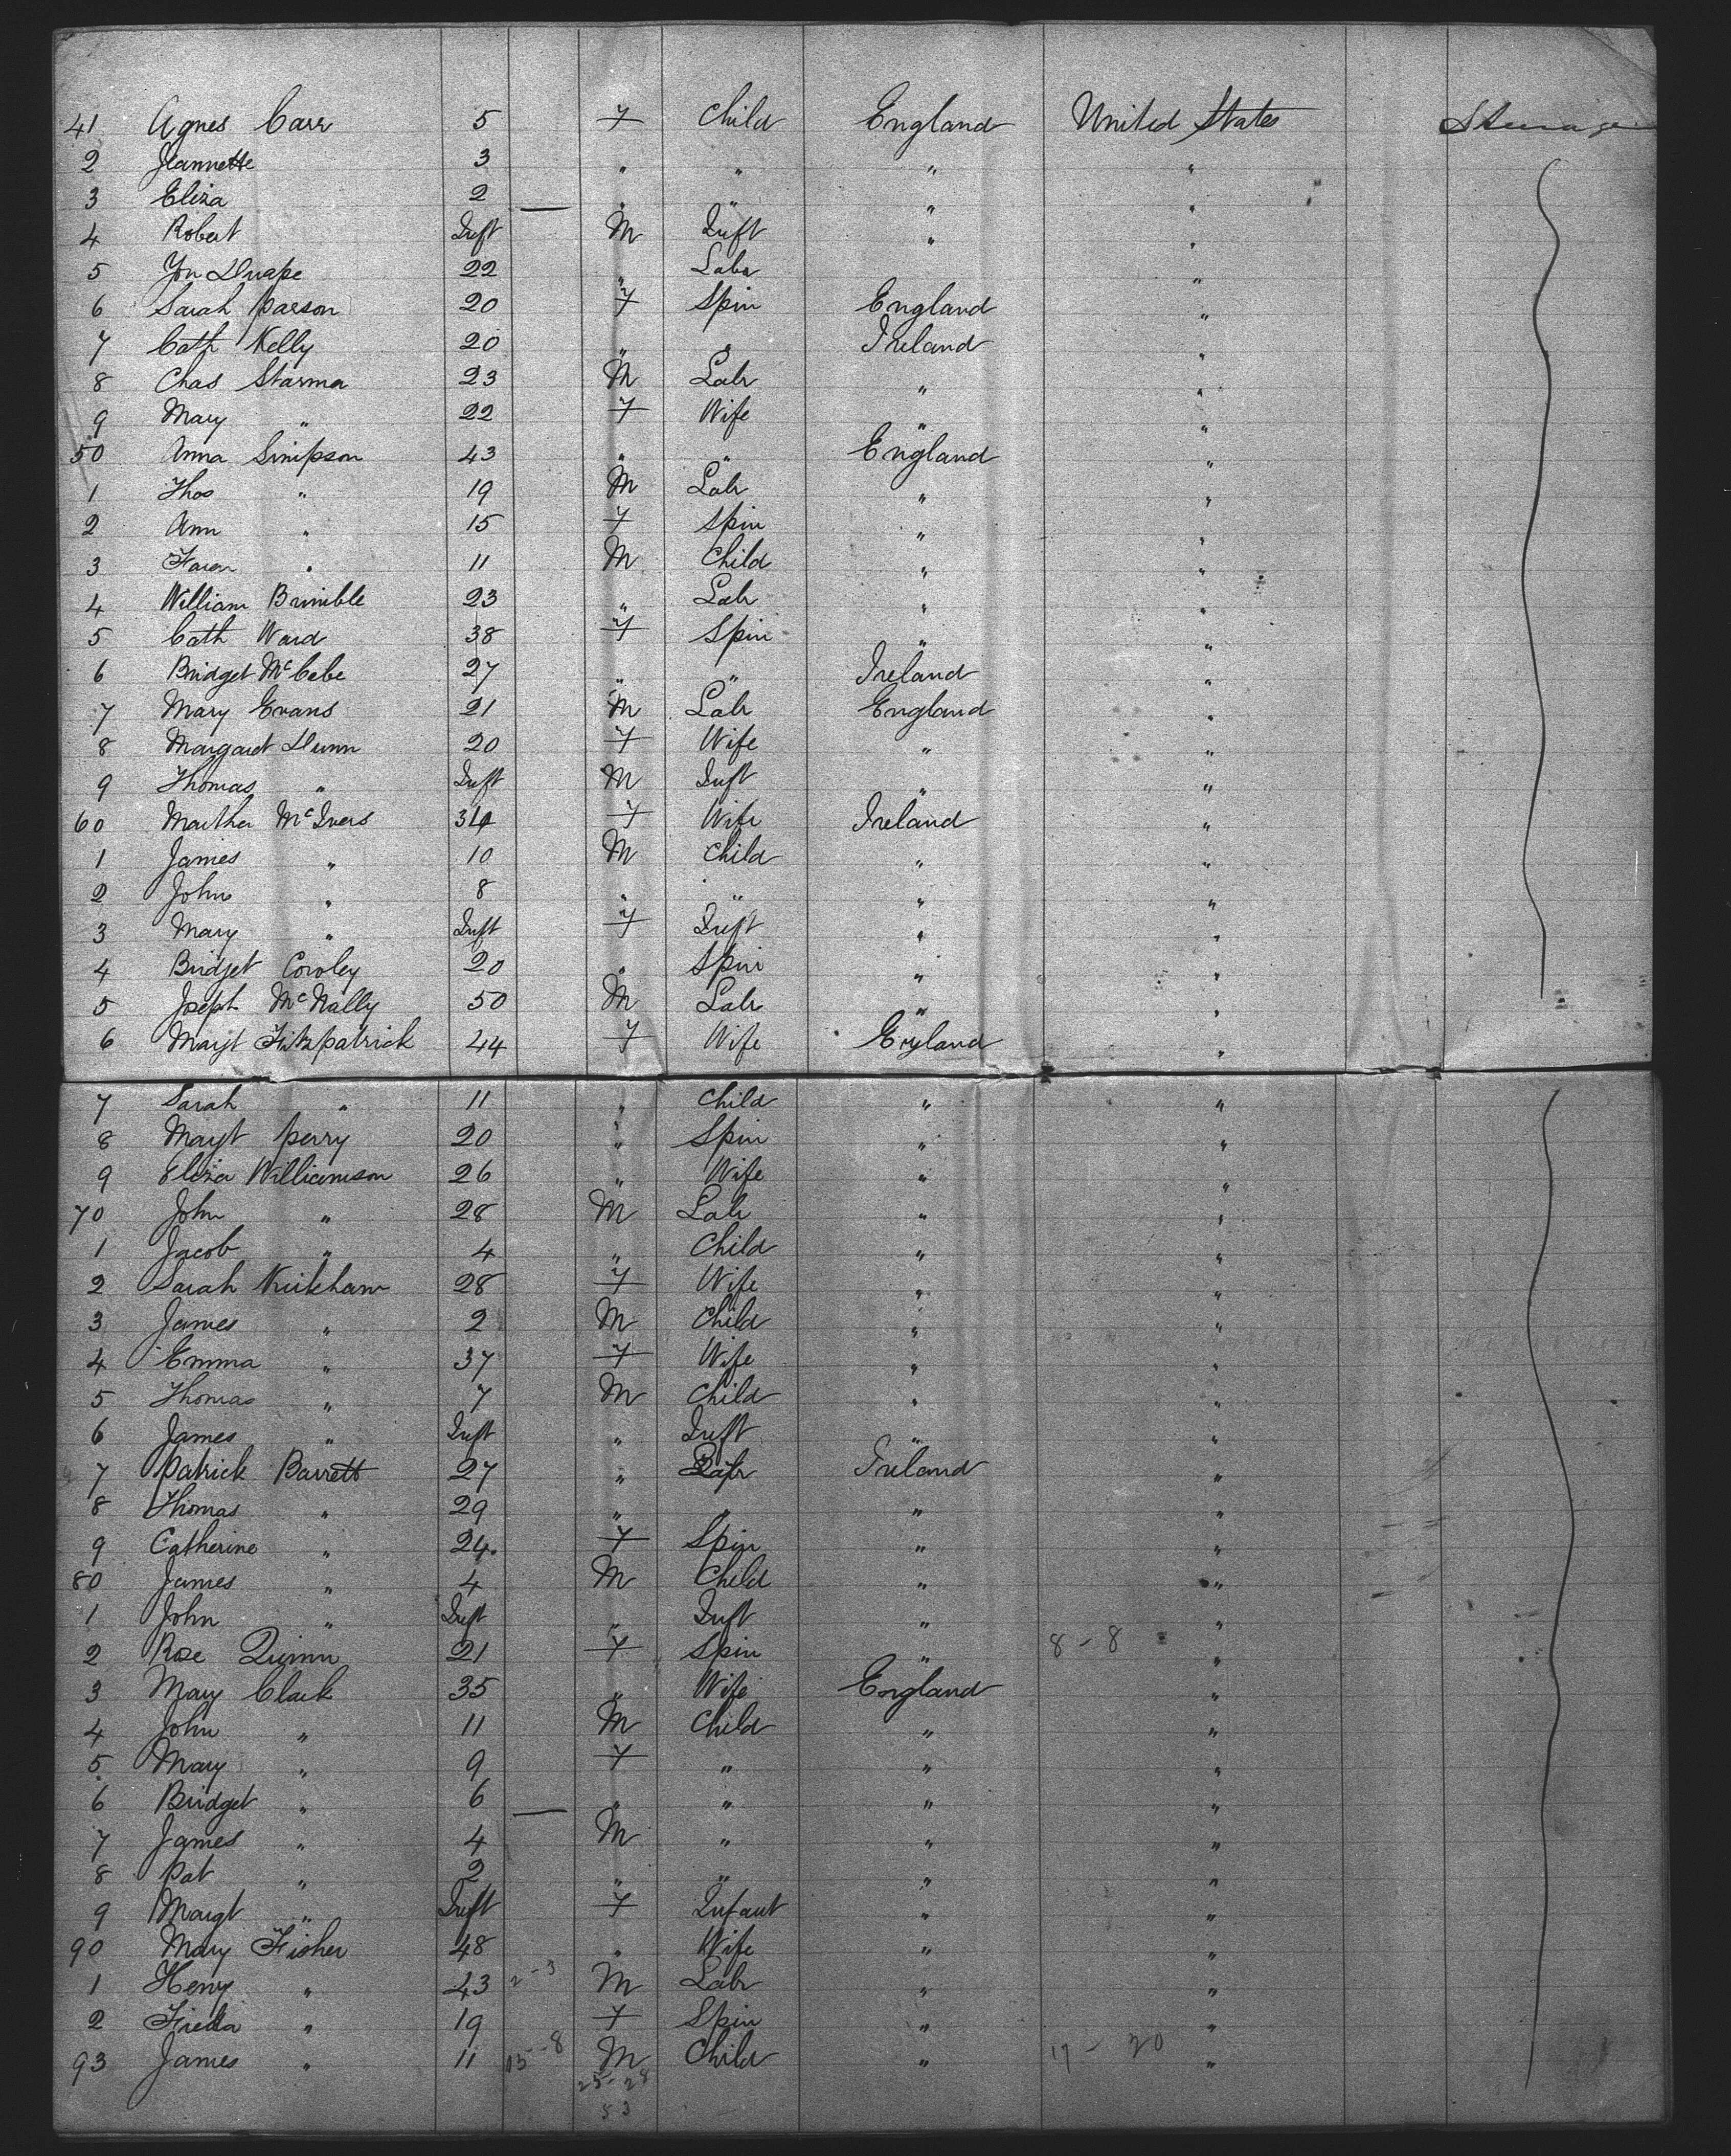 41 Agnes Carr 5 F Child England United States Steerage
2 Jeannette 3 " " " "
3 Eliza 2 — " " " "
4 Robert Inft M Inft " "
5 Jon 22 " Labr "
6 Sarah Parson 20 F Spin England "
7 Cath Kelly 20 " " Ireland "
8 Chas Starma 23 M Labr " "
9 Mary " 22 F Wife " "
50 Anna Simpson 43 " " England "
1 Thos " 19 M Labr " "
2 Ann " 15 F Spin " "
3 " 11 M Child " "
4 William Brimble 23 " Labr " "
5 Cath Ward 38 F Spin " "
6 Bridget McCabe 27 " " Ireland "
7 Mary Evans 21 M Labr England "
8 Margaret Dunn 20 F Wife " "
9 Thomas " Inft M Inft " "
60 Martha McIvers 34 F Wife Ireland "
1 James " 10 M Child " "
2 John " 8 " " " "
3 Mary " Inft F Inft " "
4 Bridget 20 " Spin " "
5 Joseph McNally 50 M Labr " "
6 Margt Fitzpatrick 44 F Wife England "
7 Sarah " 11 " Child " "
8 Margt Perry 20 " Spin " "
9 Eliza Williamson 26 " Wife " "
70 John " 28 M Labr " "
1 Jacob " 4 " Child " "
2 Sarah Kirkham 28 F Wife " "
3 James " 2 M Child " "
4 Emma " 37 F Wife " "
5 Thomas " 7 M Child " "
6 James " Inft " Inft " "
7 Patrick Barrett 27 " Labr Ireland "
8 Thomas " 29 " " " "
9 Catherine " 24 F Spin " "
80 James " 4 M Child " "
1 John " Inft " Inft " "
2 Rose Quinn 21 F Spin " 8-8 "
3 Mary Clark 35 " Wife England "
4 John " 11 M Child " "
5 Mary " 9 F " " "
6 Bridget " 6 — " " " "
7 James " 4 M " " "
8 Pat " 2 " " " "
9 Margt " Inft F Infant " "
90 Mary Fisher 48 " Wife " "
1 Henry " 43 2-3 M Labr " "
2 Frieda " 19 F Spin " "
93 James " 11 15-8 M Child " 17-20 "
25-28
53